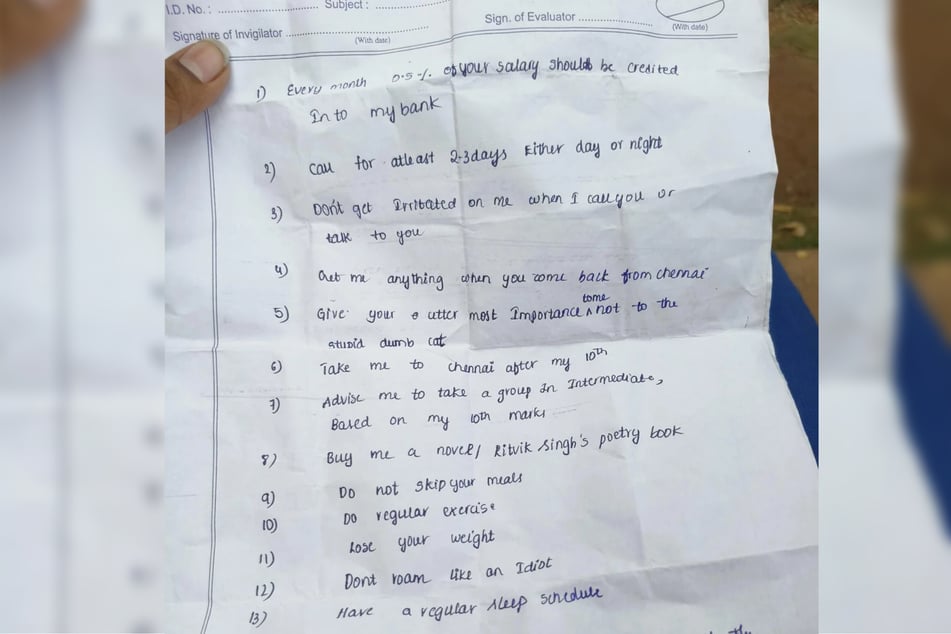 I.D. No. : .......................... Subject : ..........................
Signature of Invigilator .......................... Sign. of Evaluator ..........................
(With date) (With date)
1) Every month 0.5% of your salary should be credited
Into my bank
2) Call for atleast 2-3days Either day or night
3) Don't get Irritated on me when I call you or
talk to you
4) Get me anything when you come back from chennai
5) Give your utter most Importance tome not to the
stupid dumb cat
6) Take me to chennai after my 10th
7) Advise me to take a group In Intermediate,
Based on my 10th marks
8) Buy me a novel/ Ritvik Singh's poetry book
9) Do not skip your meals
10) Do regular exercise
11) Lose your weight
12) Dont roam like an Idiot
13) Have a regular sleep schedule